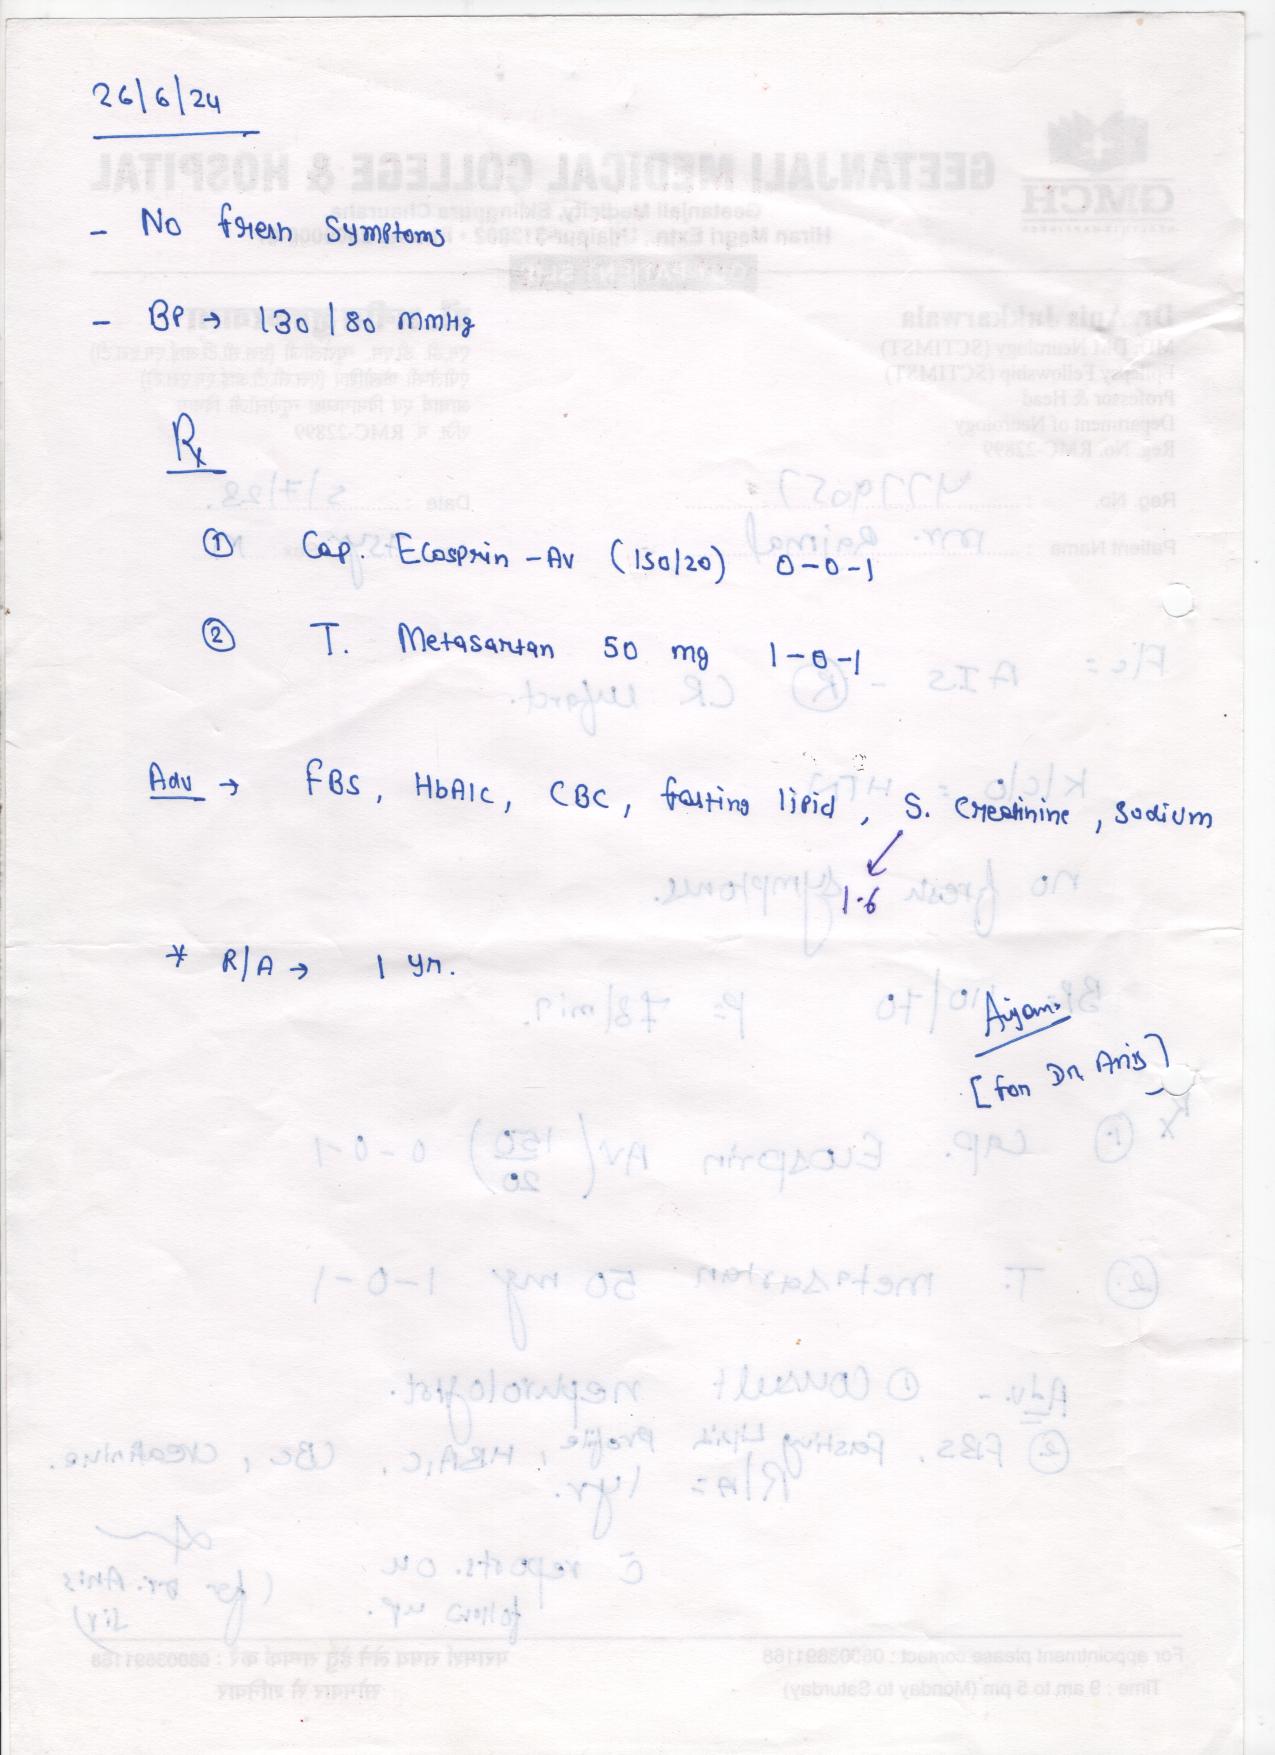 26/6/24
- No fresh symptoms
- BP → 130/80 mmHg
Rx
① Cap. Ecosprin-AV (150/20) 0-0-1
② T. Metasartan 50 mg 1-0-1
Adv → FBS, HbA1C, CBC, fasting lipid, S. Creatinine, Sodium
1.6
* R/A → 1 yr.
[for Dr. Anis]